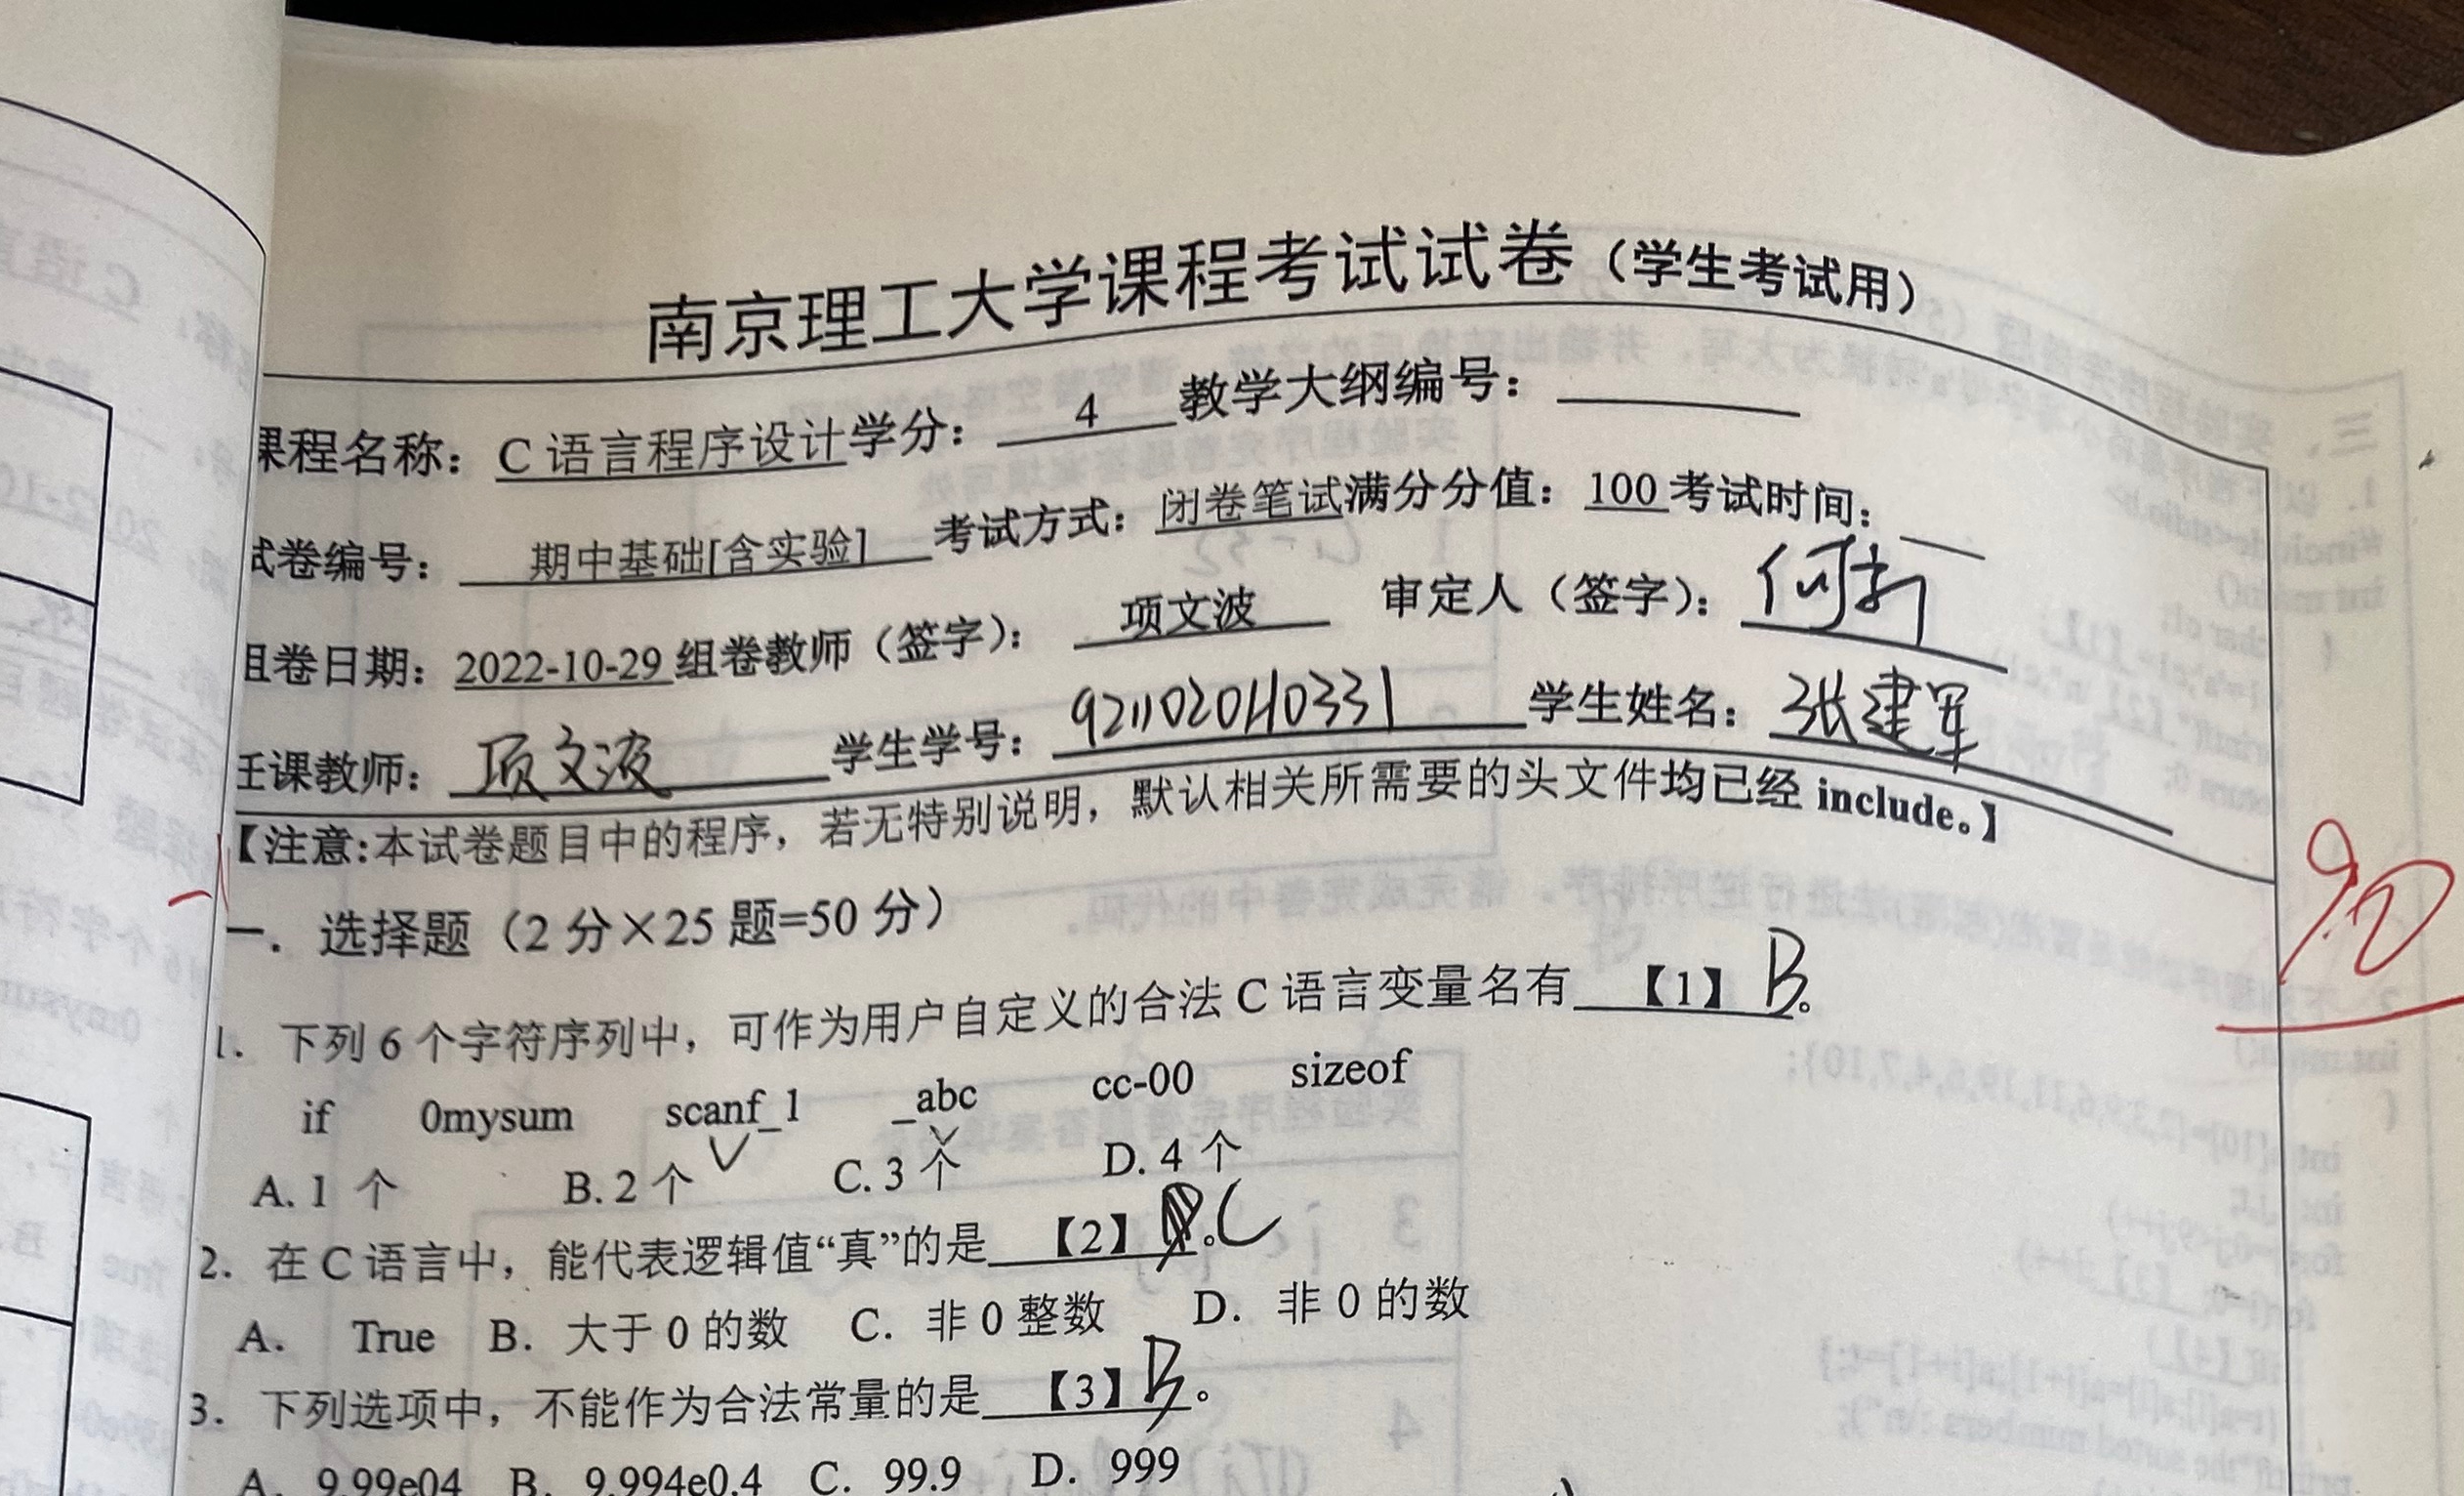 南京理工大学课程考试试卷（学生考试用）
课程名称：C 语言程序设计学分：4 教学大纲编号：
试卷编号：期中基础[含实验] 考试方式：闭卷笔试满分分值：100 考试时间：
组卷日期：2022-10-29 组卷教师（签字）：项文波 审定人（签字）：
任课教师：项文波 学生学号：921102010331 学生姓名：张建军
【注意:本试卷题目中的程序，若无特别说明，默认相关所需要的头文件均已经 include。】
90
一．选择题（2 分×25 题=50 分）
1．下列 6 个字符序列中，可作为用户自定义的合法 C 语言变量名有【1】B。
if 0mysum scanf_1 _abc cc-00 sizeof
A. 1 个 B. 2 个 C. 3 个 D. 4 个
2．在 C 语言中，能代表逻辑值“真”的是【2】。C
A． True B．大于 0 的数 C．非 0 整数 D．非 0 的数
3．下列选项中，不能作为合法常量的是【3】B。
A．9.99e04 B．9.994e0.4 C．99.9 D．999